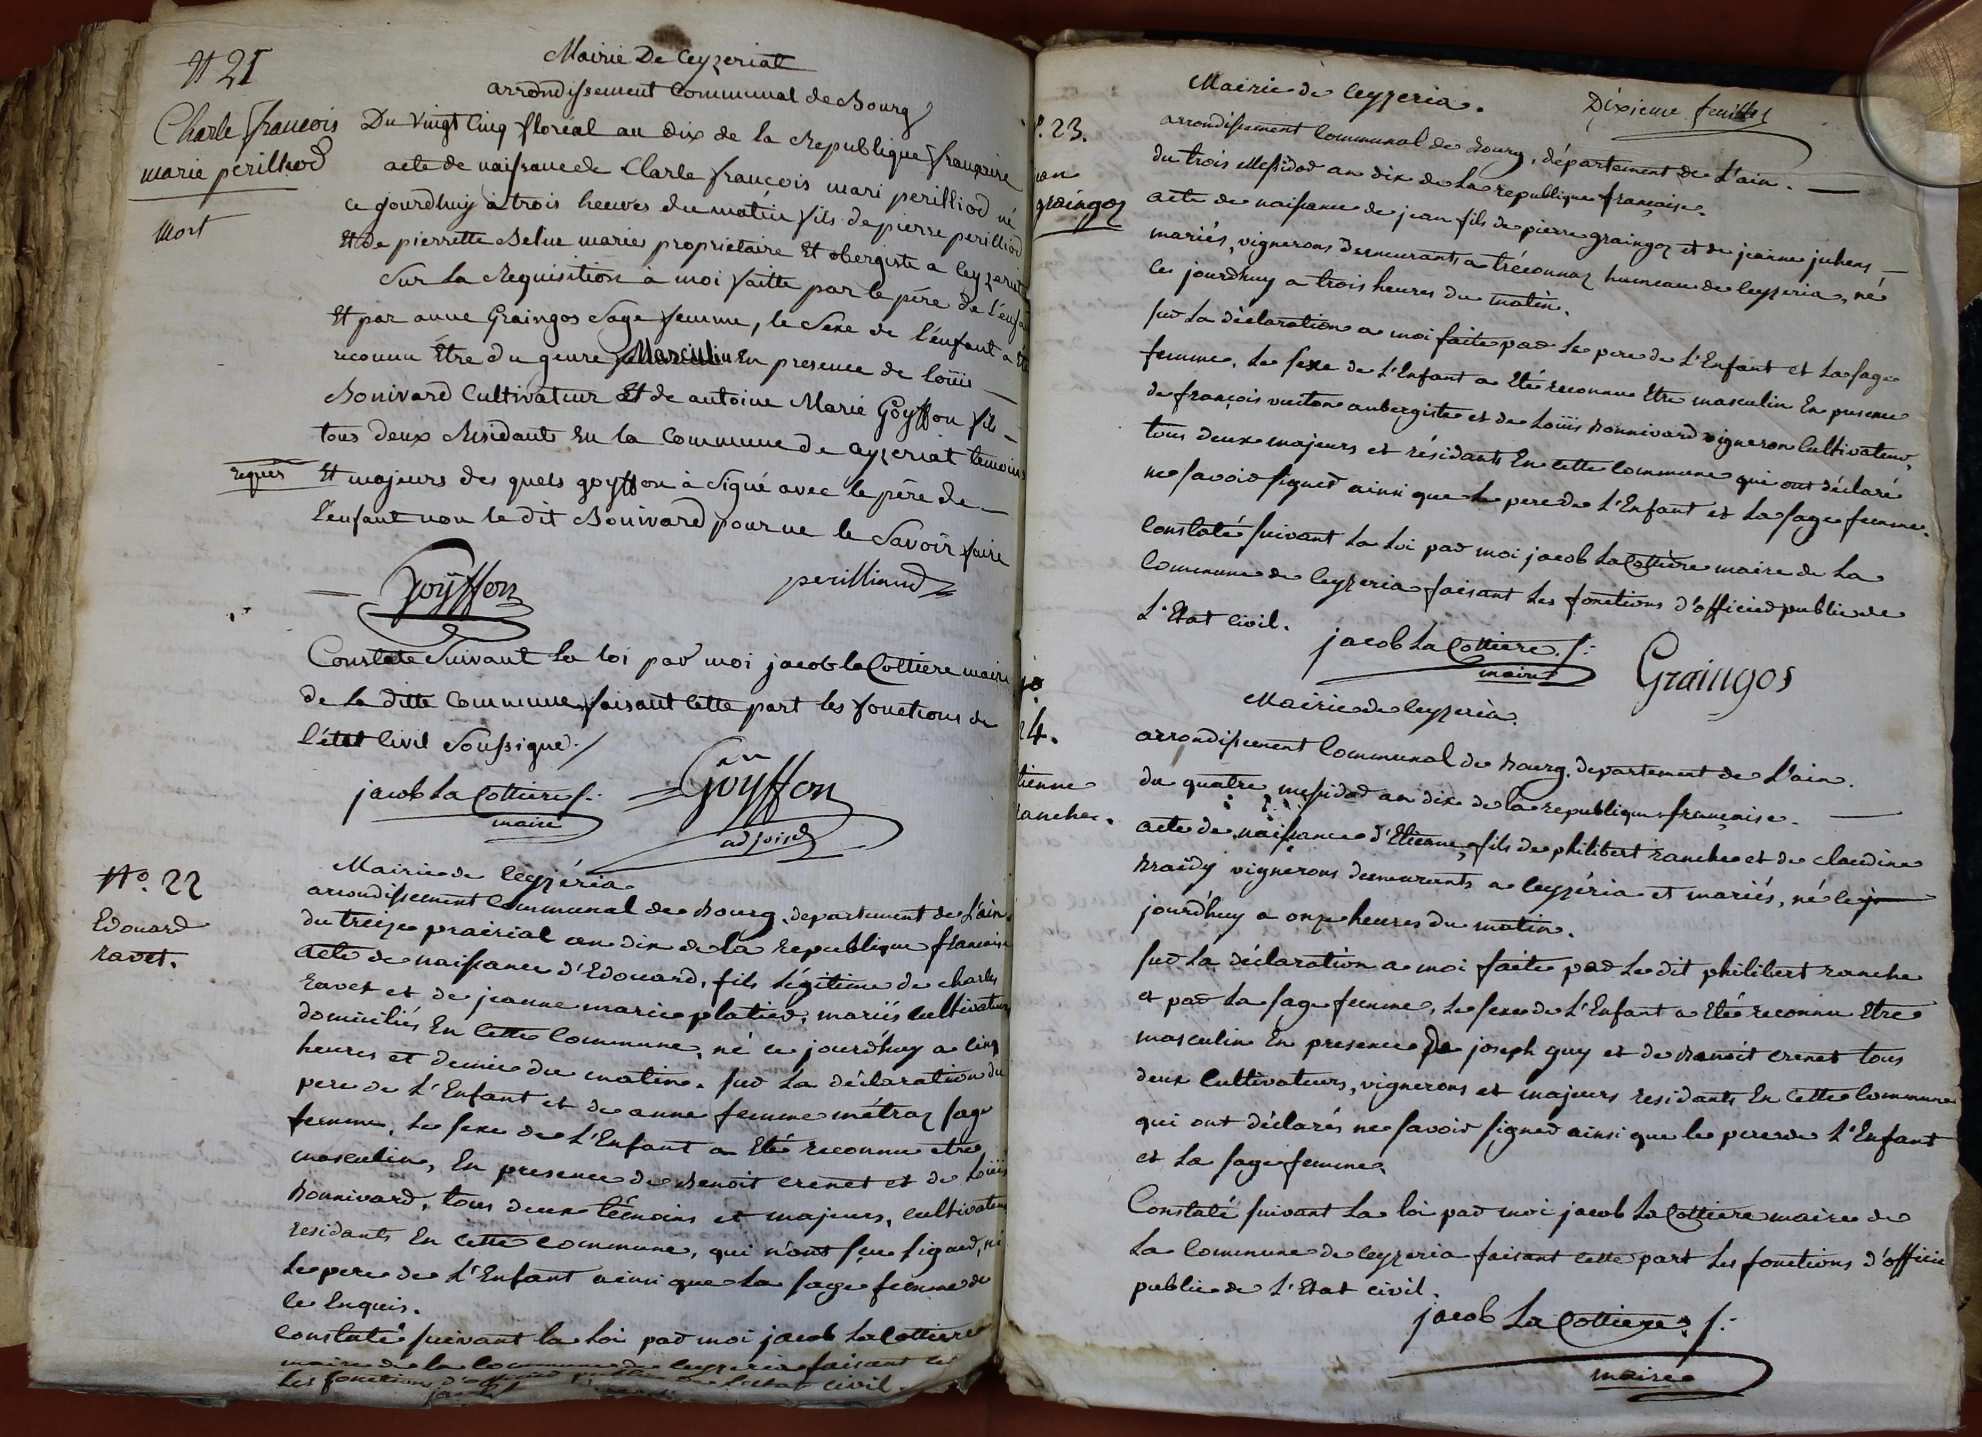 N 21
Charle françois
marie perilliod
mort
Mairie De Ceyzeriat
arrondissement Communal de Bourg
Du Vingt Cinq floréal an dix de la Republique française
acte de naissance de Charle françois mari perilliod né
ce jourdhuy à trois heuves du matin fils de pierre perilliod
Et de pierrette marie proprietaire Et obergiste a Ceyzeriat
Sur la Requisition à moi faitte par le père de l'enfant
Et par anne Graingos Sage femme, le Sexe de l'enfant a été
reconnu Être du genre Masculin En presence de loüis
Bonivard Cultivateur Et de antoine Marie Goÿffon fils
tous deux Residants En la Commune de Ceyzeriat temoins
requis Et majeurs des quels goyffon à Signé avec le père de
l'enfant non le dit Bonivard pour ne le Savoir faire
Goÿffon
perilliaud
Constate Suivant la loi par moi jacob la Cottiere maire
de la ditte Commune faisant cette part les fonctions de
l'état Civil Soussigné
jacob La Cottiere
maire
Goÿffon
adjoint
No. 22
Edouard
ravet.
Mairie de Ceyzéria
arrondissement Communal de Bourg, departement de L'ain.
du treize prairial an dix de la republique francaise
acte de naissance d'Edouard, fils légitime de charles
ravet et de jeanne marie platied, mariés cultivateurs
domiciliés En Cette Commune, né ce jourd'huy a cinq
heures et demie du matin. sur La déclaration du
pere de L'Enfant et de anne femme métraz sage
femme, Le sexe de L'Enfant a Eté reconnu etre
masculin, En presence de Benoit crenet et de Loüis
Bonnivard, tous deux témoins et majeurs, cultivateurs
residants En Cette commune, qui n'ont sçu signer, ni
Le pere de L'Enfant ainsi que La sage femme de
ce Enquis.
Constaté suivant la Loi par moi jacob La Cottierre
maire de la Commune de Ceyzeria faisant
Les fonctions d'officier public de L'Etat civil.
Dixieme feuillet
23.
graingoz
Mairie de Ceyzeria.
arrondissement Communal de Bourg, département de L'ain.
du trois Messidor an dix de La republique française.
acte de naissance de jean fils de pierre graingoz et de jeanne juhens
mariés, vignerons demeurants a tréconnaz hameau de Ceyzeria, né
Ce jourdhuy a trois heures du matin.
sur La déclaration a moi faite par Le pere de L'Enfant et La sage
femme, Le sexe de L'Enfant a Eté reconnu Etre masculin En presence
de françois vuiton aubergiste et de Loüis Bonnivard vigneron Cultivateur,
tous deux majeurs et résidants En cette Commune qui ont déclaré
ne savoir signer ainsi que Le pere de L'Enfant et La sage femme.
Constaté suivant La Loi par moi jacob La Cottière maire de La
Commune de Ceyzeria faisant Les fonctions d'officier public de
L'Etat Civil.
jacob La Cottiere
maire
Graingos
24.
tienne
ranche.
Mairie de Ceyzeria.
arrondissement Communal de Bourg, departement de L'ain.
du quatre messidor an dix de la republique française.
acte de naissance d'Etienne, fils de philibert ranche et de claudine
Braidy vignerons demeurants a Ceyzéria et mariés, né ce
jourd'huy a onze heures du matin.
sur La déclaration a moi faite par Le dit philibert ranche
et par La sage femme, Le sexe de L'Enfant a Eté reconnu Etre
masculin En presence De joseph guy et de Benoit crenet tous
deux Cultivateurs, vignerons et majeurs residants En Cette Commune
qui ont déclarés ne savoir signer ainsi que le pere de L'Enfant
et La sage femme.
Constaté suivant La loi par moi jacob La Cottiere maire de
La Commune de Ceyzeria faisant cette part Les fonctions d'officier
public de L'Etat civil.
jacob La Cottiere
maire